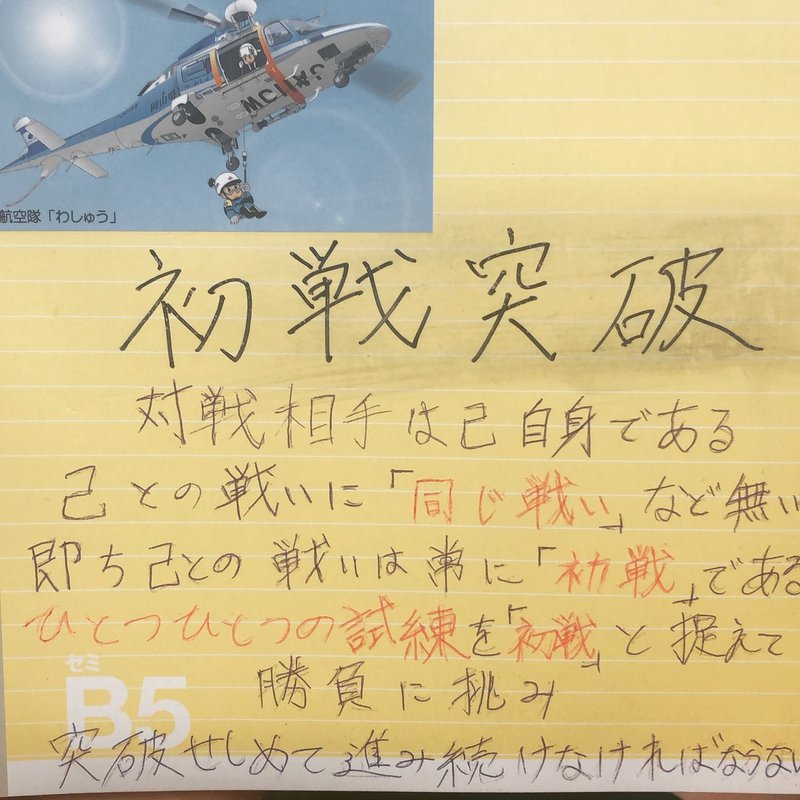 航空隊「わしゅう」
初戦突破
対戦相手は己自身である
己との戦いに「同じ戦い」など無い
即ち己との戦いは常に「初戦」である
ひとつひとつの試練を「初戦」と捉えて
セミ
B5
勝負に挑み
突破せしめて進み続けなければならない